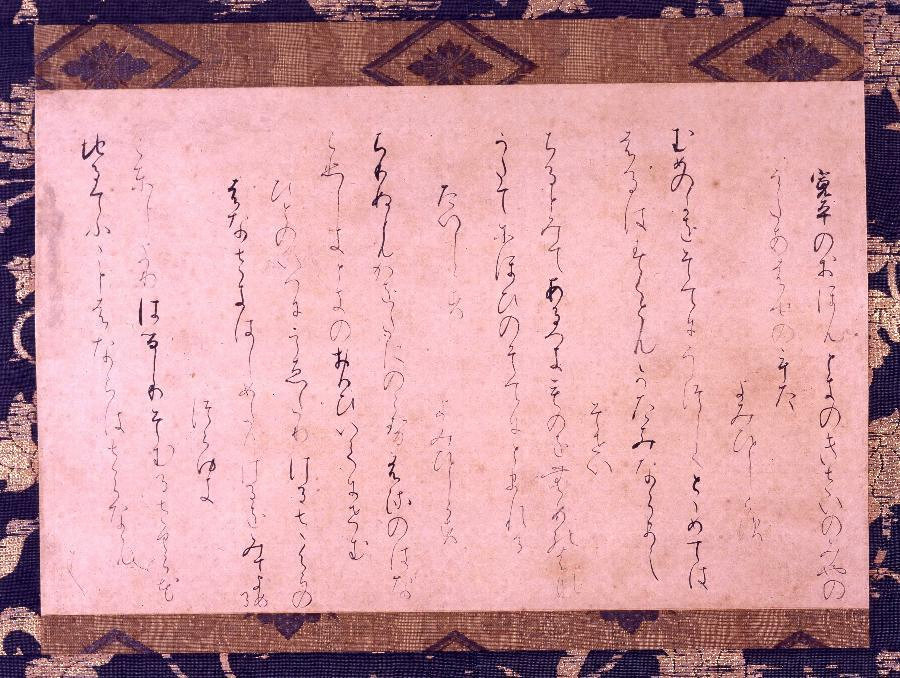 寛平のおほんときのきさいのみやの
うたあはせのうた
よみひとしらす
むめのかをそてにうつしてとゝめては
はるはすくともかたみならまし
そせい
ちるとみてあるへきものをむめのはな
うたてにほひのそてにとまれる
たいしらす　よみひとしらす
ちりぬともかをたにのこせむめのはな
こひしきときのおもひいてにせむ
ひとのいへにうゑたりけるさくらの
はなさきはしめたりけるをみてよめる
つらゆき
ことしよりはるしりそむるさくらはな
ちるてふことはならはさらなむ